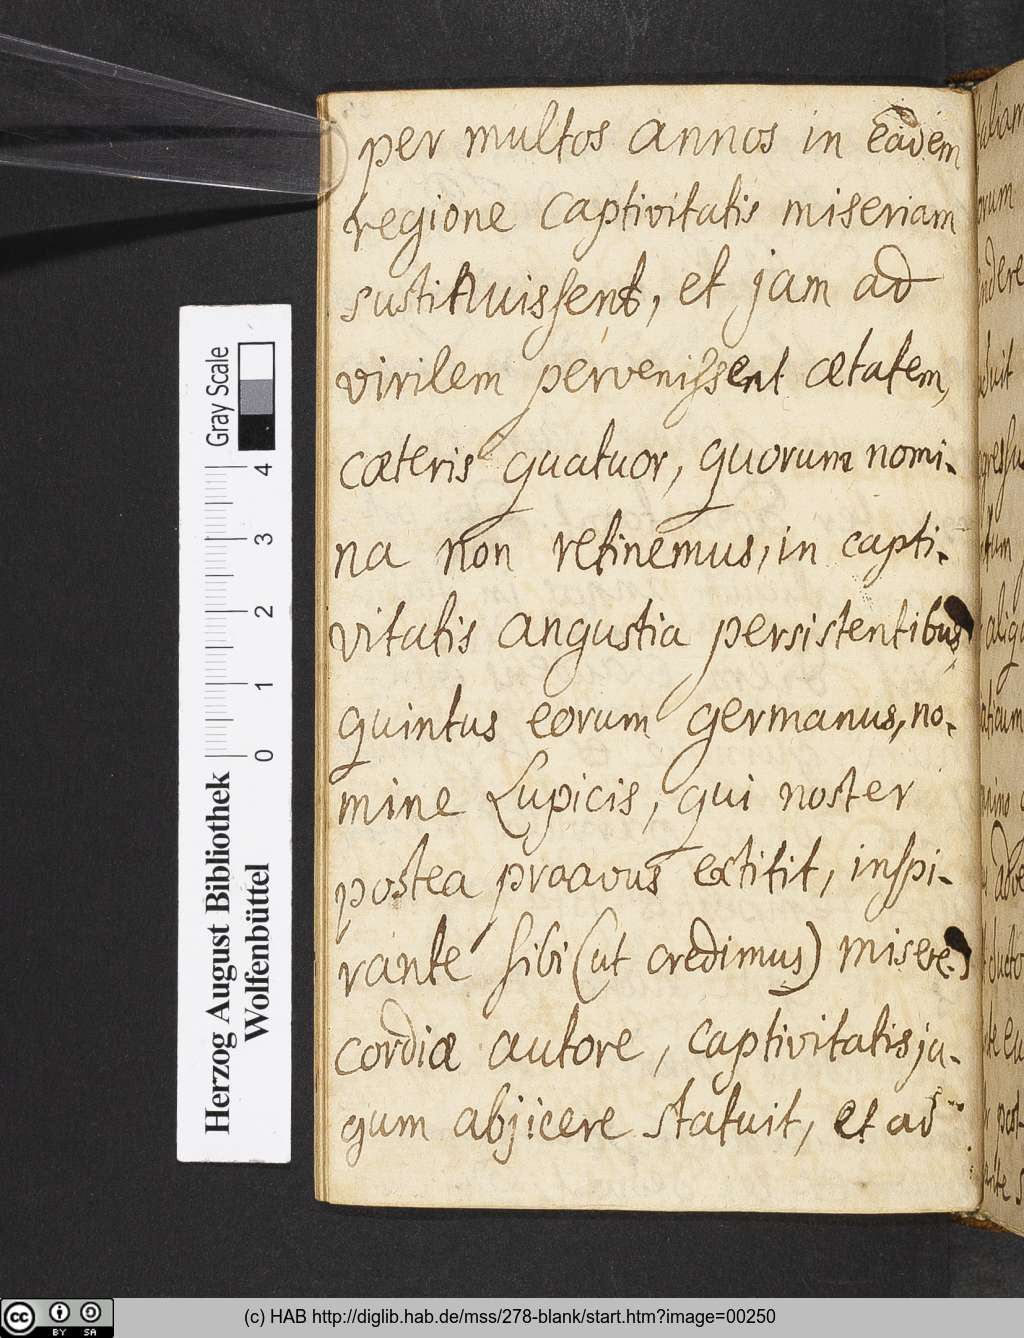 per multos annos in eadem
regione captivitatis miseriam
sustinuissent, et jam ad
virilem pervenissent ætatem,
cæteris quatuor, quorum nomi-
na non retinemus, in capti-
vitatis angustia persistentibus
quintus eorum germanus, no-
mine Lupicis, qui noster
postea proavus extitit, inspi-
rante sibi (ut credimus) misere-
cordiæ autore, captivitatis ju-
gum abjicere statuit, et ad
Herzog August Bibliothek
Wolfenbüttel
0 1 2 3 4
Gray Scale
cc BY SA
(c) HAB http://diglib.hab.de/mss/278-blank/start.htm?image=00250